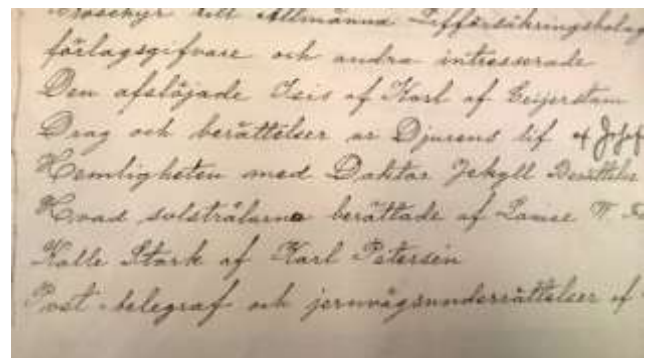 till Allmänna Lifförsäkringsbolag
förlagsgifvare och andra intresserade
Den afslöjade Isis af Karl af Geijerstam
Drag och berättelser ur Djurens lif af
Hemligheten med Doktor Jekyll Berättelse
Hvad solstrålarne berättade af Louise W.
Kalle Stark af Karl Petersén
Post-telegraf och jernvägsunderrättelser af